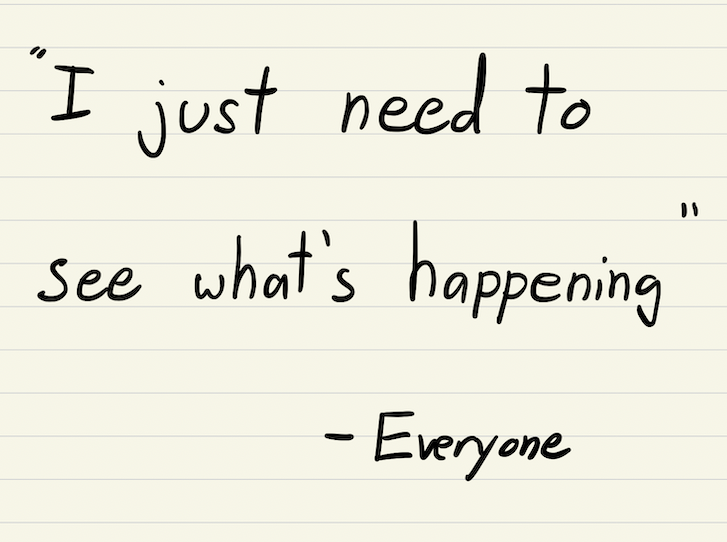 "I just need to
see what's happening"
- Everyone